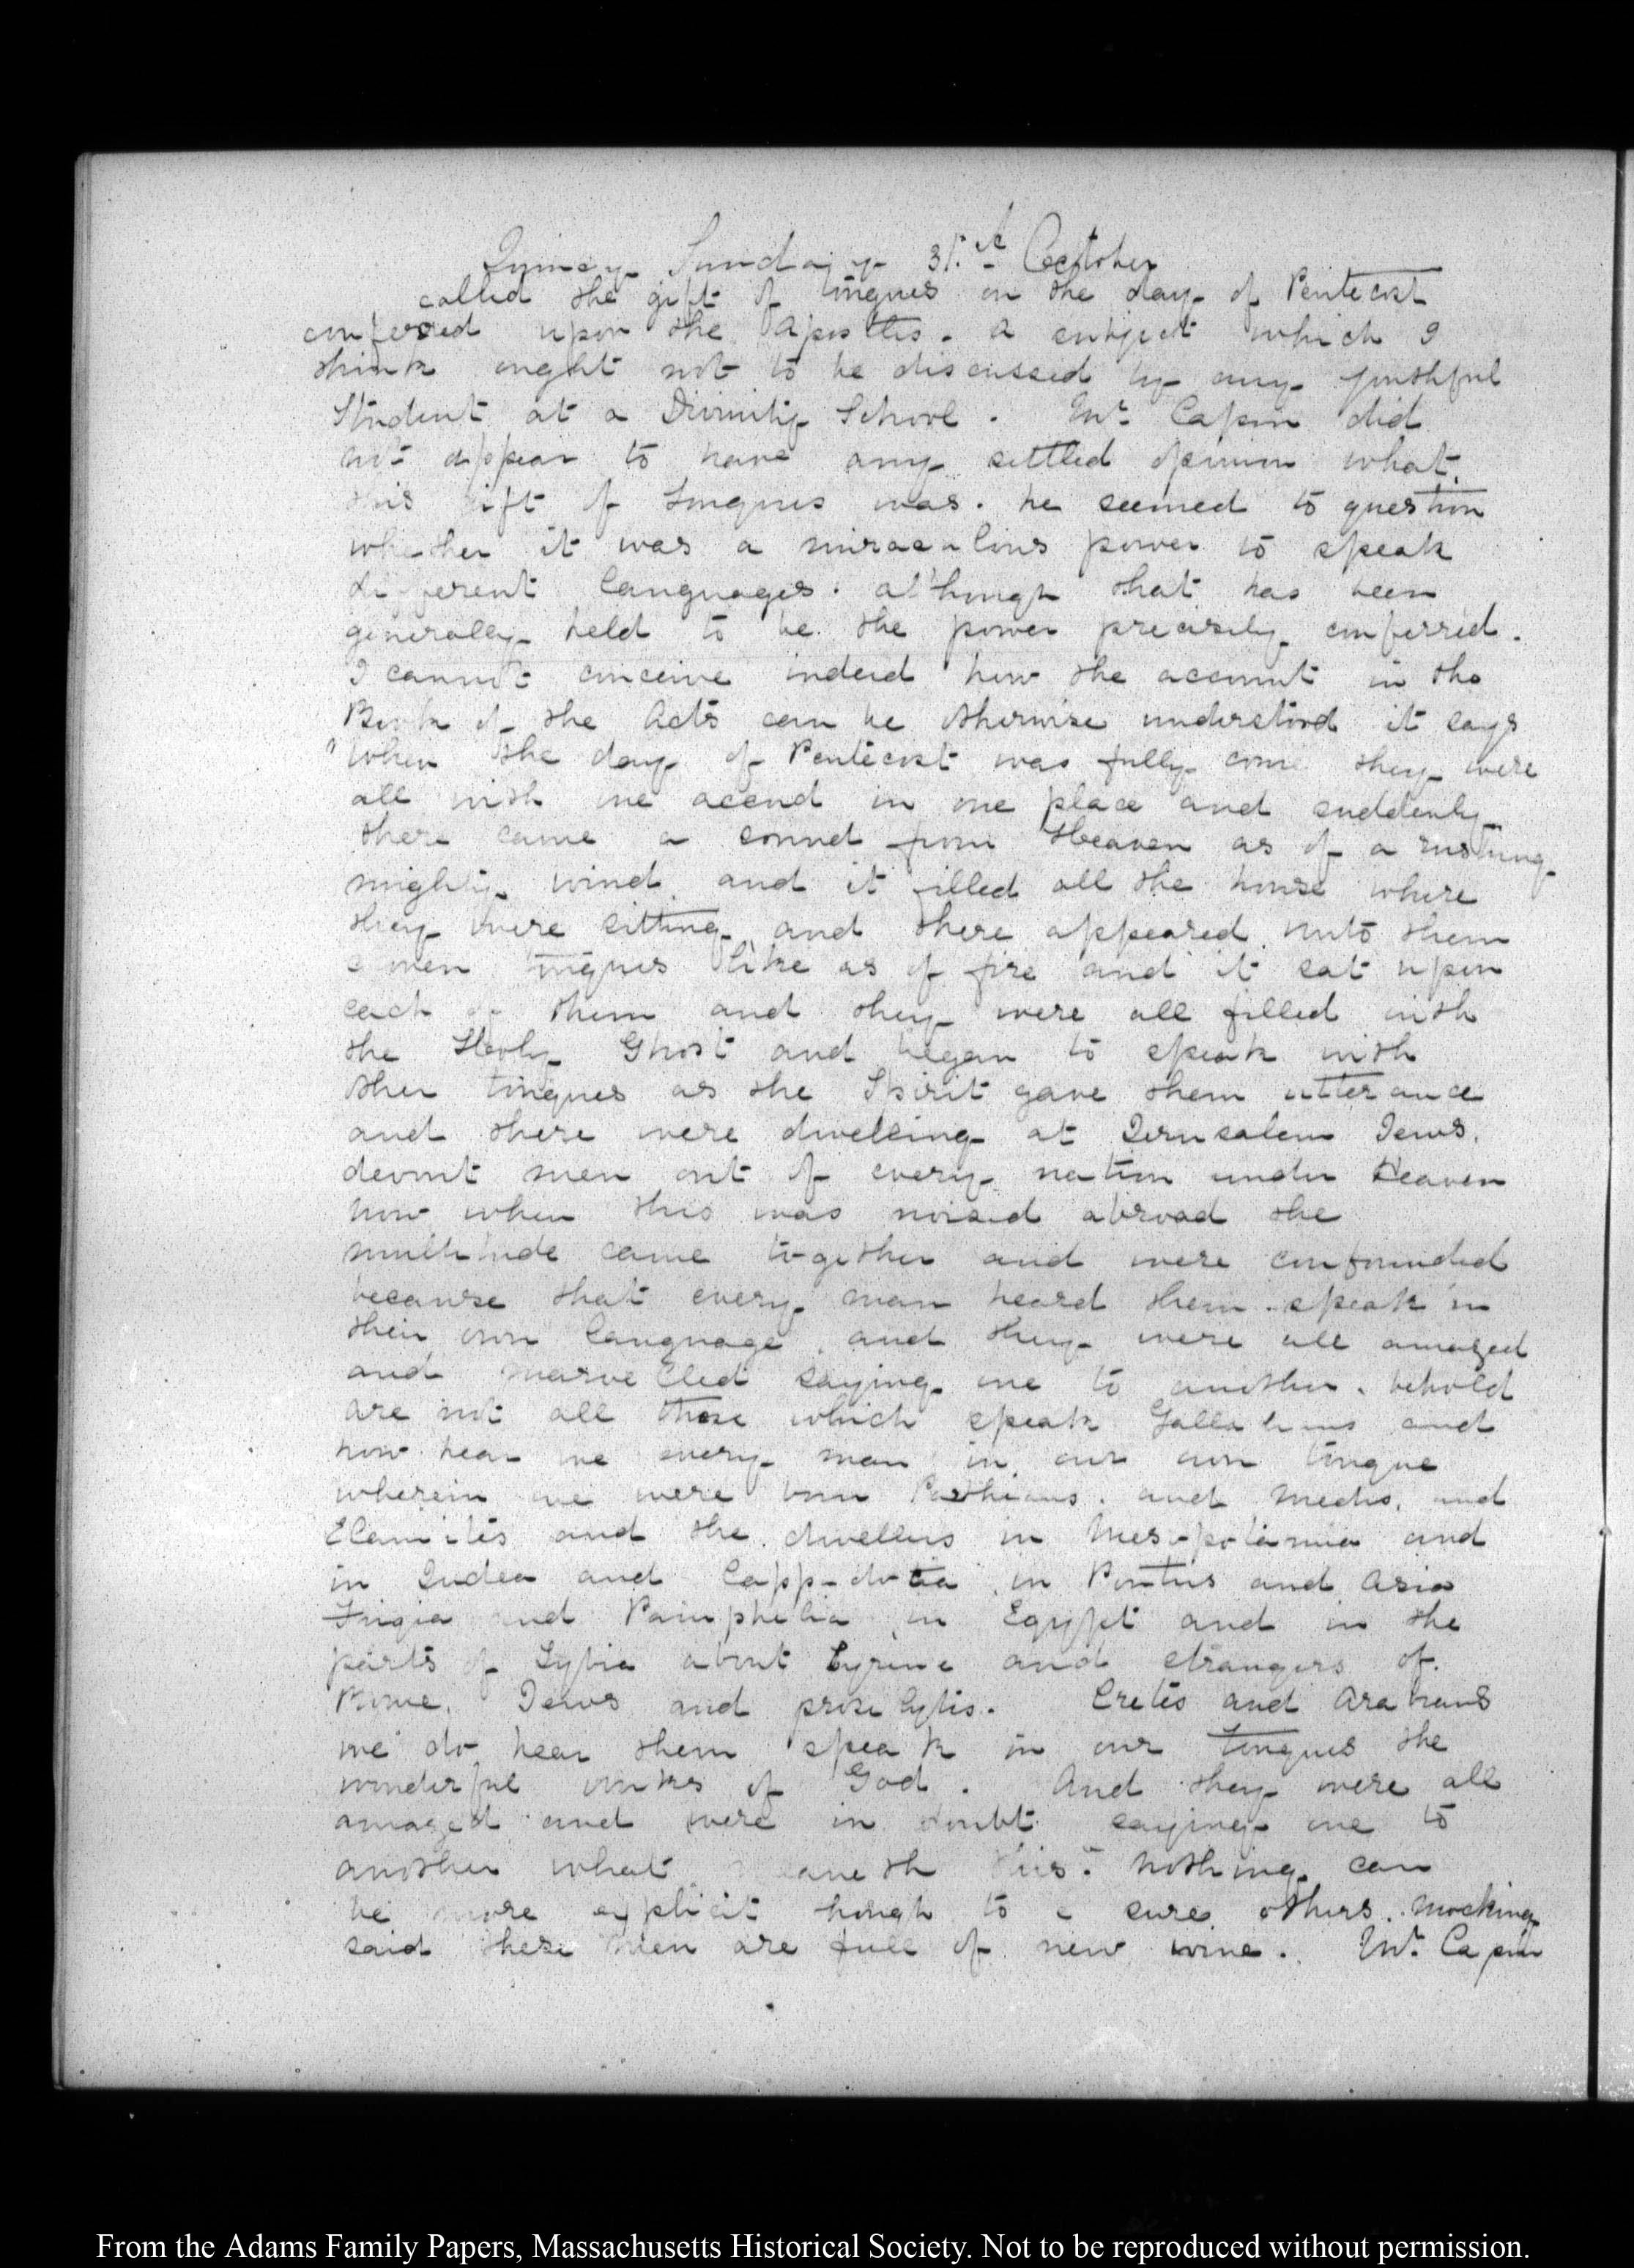 Quincy Sunday 31.st October
called the gift of tongues on the day of Pentecost
conferred upon the Apostles. a subject which I
think ought not to be discussed by any youthful
Student at a Divinity School. Mr. Capen did
not appear to have any settled opinion what
this gift of tongues was. he seemed to question
whether it was a miraculous power to speak
different languages. although that has been
generally held to be the power precisely conferred.
I cannot conceive indeed how the account in the
Book of the Acts can be otherwise understood it says
"When the day of Pentecost was fully come they were
all with one accord in one place and suddenly
there came a sound from Heaven as of a rushing
mighty wind and it filled all the house where
they were sitting and there appeared unto them
cloven tongues like as of fire and it sat upon
each of them and they were all filled with
the Holy Ghost and began to speak with
other tongues as the Spirit gave them utterance
and there were dwelling at Jerusalem Jews.
devout men out of every nation under Heaven
now when this was noised abroad the
multitude came together and were confounded
because that every man heard them speak in
their own language. and they were all amazed
and marvelled saying one to another. behold
are not all these which speak Gallaleans and
how hear we every man in our own tongue
wherein we were born Parthians. and Medes. and
Elamites and the dwellers in Mesopotamia and
in Judea and Cappadocia in Pontus and Asia
Frigia and Pamphelia in Egypt and in the
parts of Lybia about Cyrene and strangers of
Rome. Jews and proselytes. Cretes and Arabians
we do hear them speak in our tongues the
wonderful works of God. And they were all
amazed and were in doubt saying one to
another what meaneth this. Nothing can
be more explicit though to be sure others. mocking
said these men are full of new wine. Mr. Capen
From the Adams Family Papers, Massachusetts Historical Society. Not to be reproduced without permission.